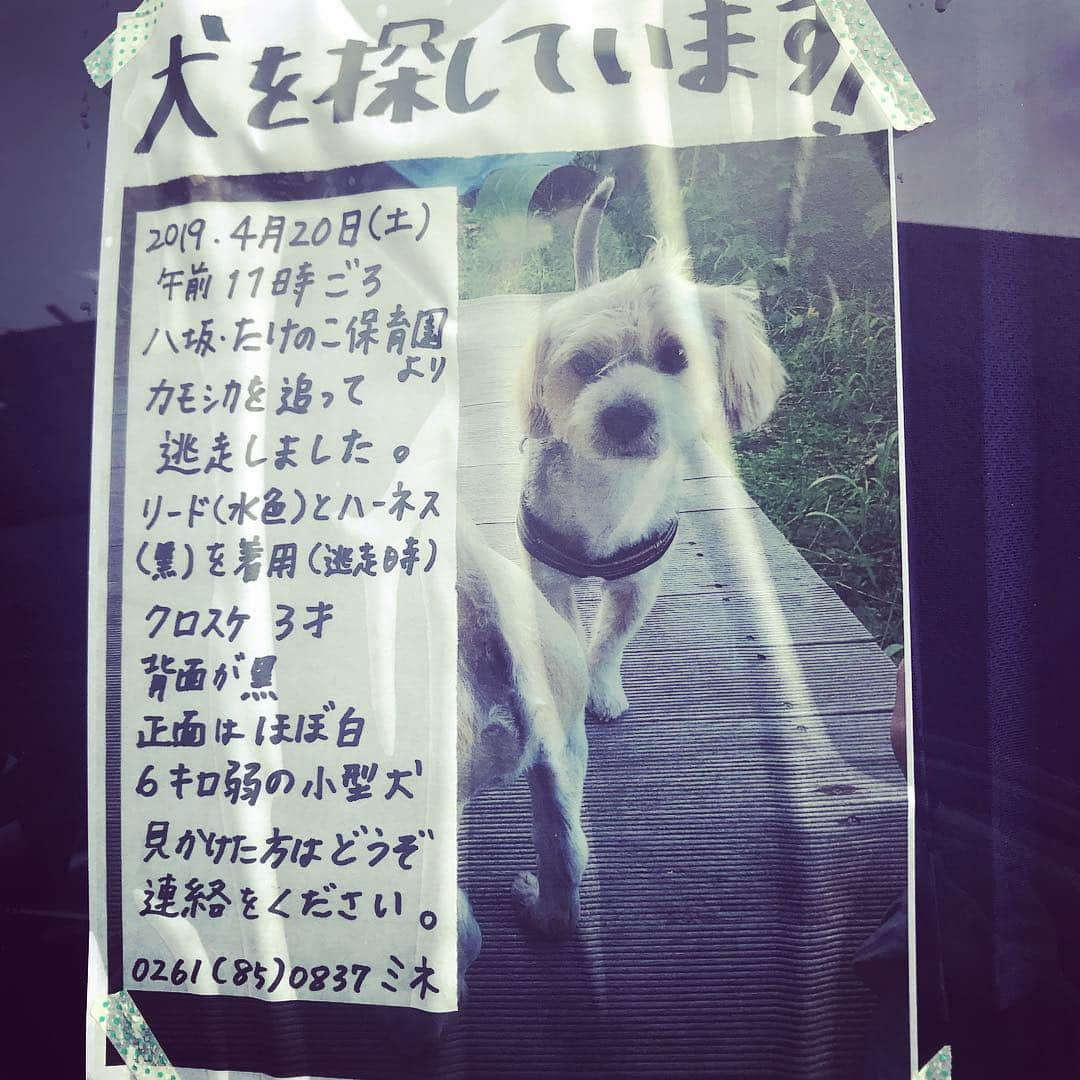 犬を探しています!
2019.4月20日(土)
午前11時ごろ
八坂・たけのこ保育園
より
カモシカを追って
逃走しました。
リード(水色)とハーネス
(黒)を着用(逃走時)
クロスケ 3才
背面が黒
正面はほぼ白
6キロ弱の小型犬
見かけた方はどうぞ
連絡をください。
0261(85)0837 ミネ